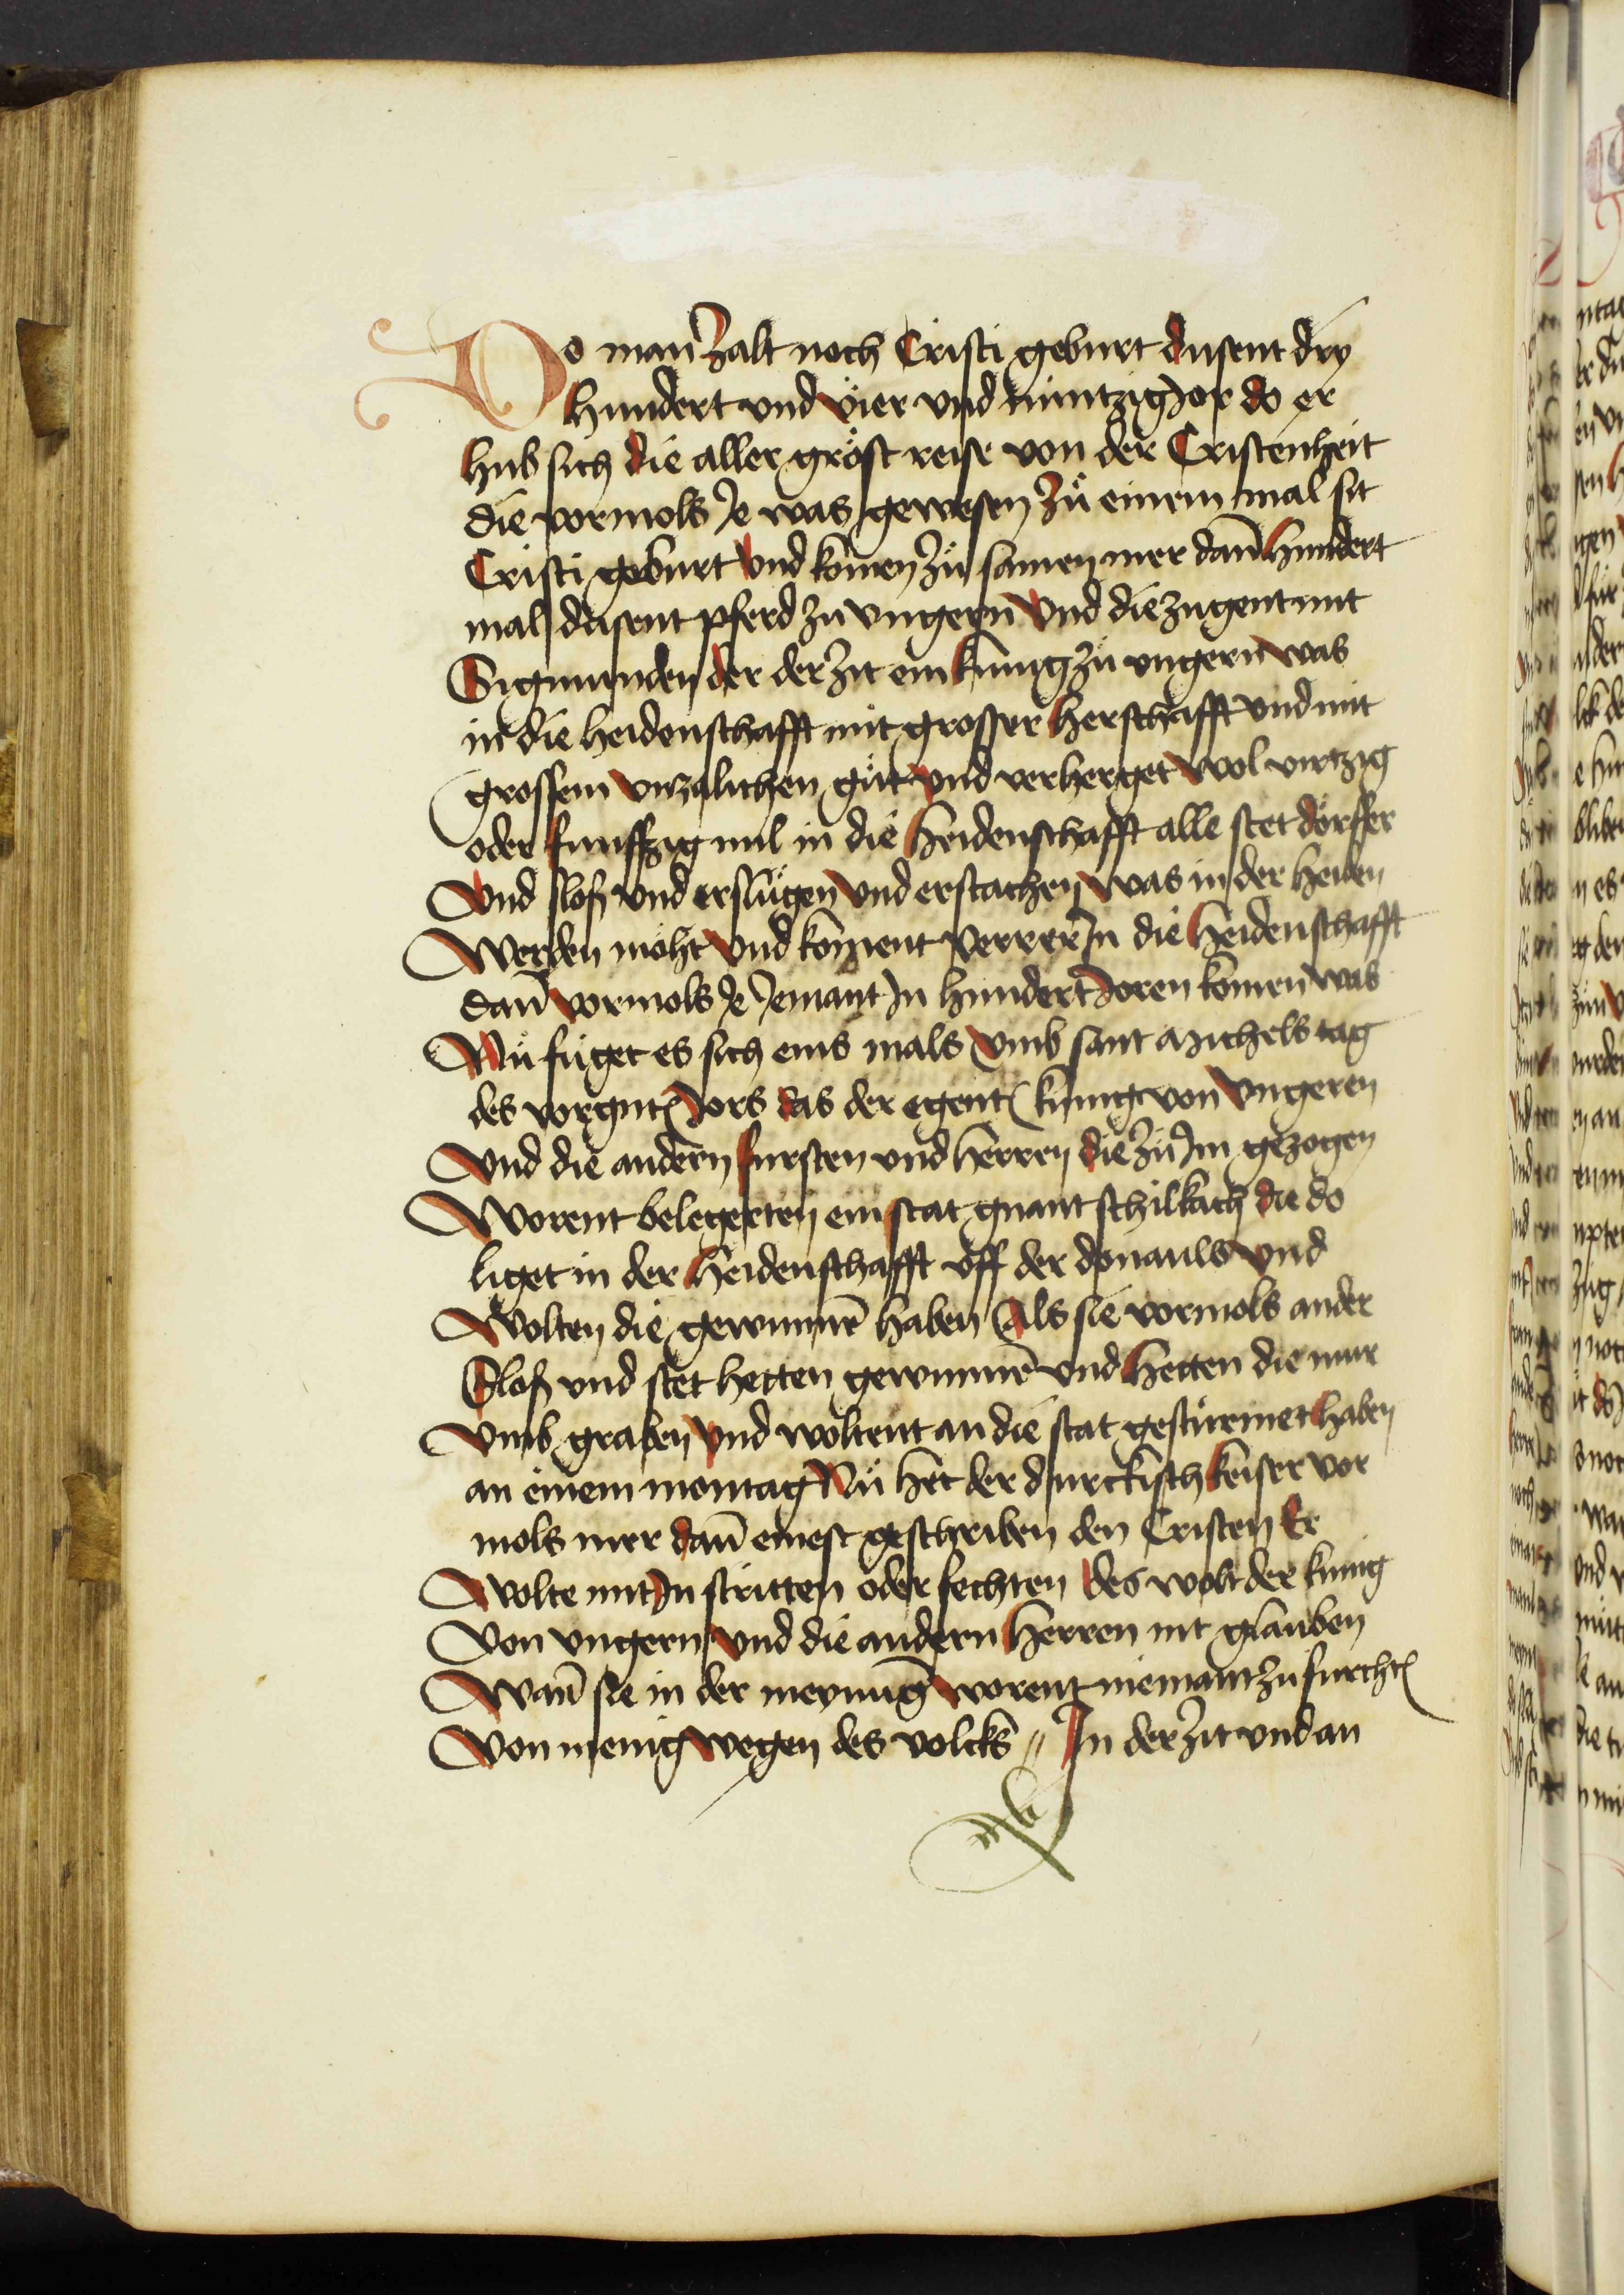 Do man zalt noch Cristi geburt dusent dry
hundert und vier und nüntzig Jor do er
hub sich die aller gröst reise von der Cristenheit
die vormols Je was gewesen zů einem mal sit
Cristi geburt Und komen zů samen mer dañ hundert
mal dusent pferd zu ungern Und die zugent mit
Sigmunden der der zit ein kunig zů ungern was
in die heidenschafft mit grosser herschafft und mit
grossem unzalichen gůt und verherget wol virtzig
oder funffzig mil in die heidenschafft alle stet dörffer
Und sloß und erslůgen Und erstachen was in der heiden
Werden möht Und koment verrer In die heidenschafft
dañ vormols Je Jemant In hundert Joren komen was
Nů fůget es sich eins mals Umb sant Michels tag
des vorgntͤ Jors das der egentͤ kunig von Ungeren
Und die andern fursten und herren die zů Im gezogen
Worent belegerten ein stat gnant schilkach die do
liget in der heidenschafft uff der donauls Und
Wolten die gewunnē haben Als sie vormols ander
Sloß und stet hetten gewunnē und hetten die mur
Umb graben Und woltent an die stat gestürmet haben
an einem montag Nů het der durckisch keiser vor
mols mer dañ einest geschriben den Cristen Er
Wolte mit In stritten oder fechten des wolt der kunig
Von ungern Und die andern herren nit glauben
Wañ sie in der meynūg worent niemant zu furchtͤ
Von menig wegen des volcks // In der zit und an